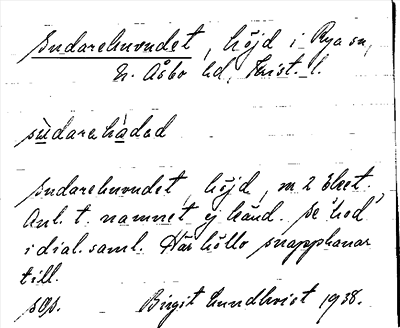 Sudarehuvudet, höjd i Rya sn,
N. Åsbo hd, Krist. l.
sùdarehàdad
Sudarehuvudet, höjd, m 2 Eket.
Anl. t. namnet ej känd. Se 'hod'
i dial. saml. Här höllo snapphanar
till.
sgs. Birgit Lundkvist 1938.